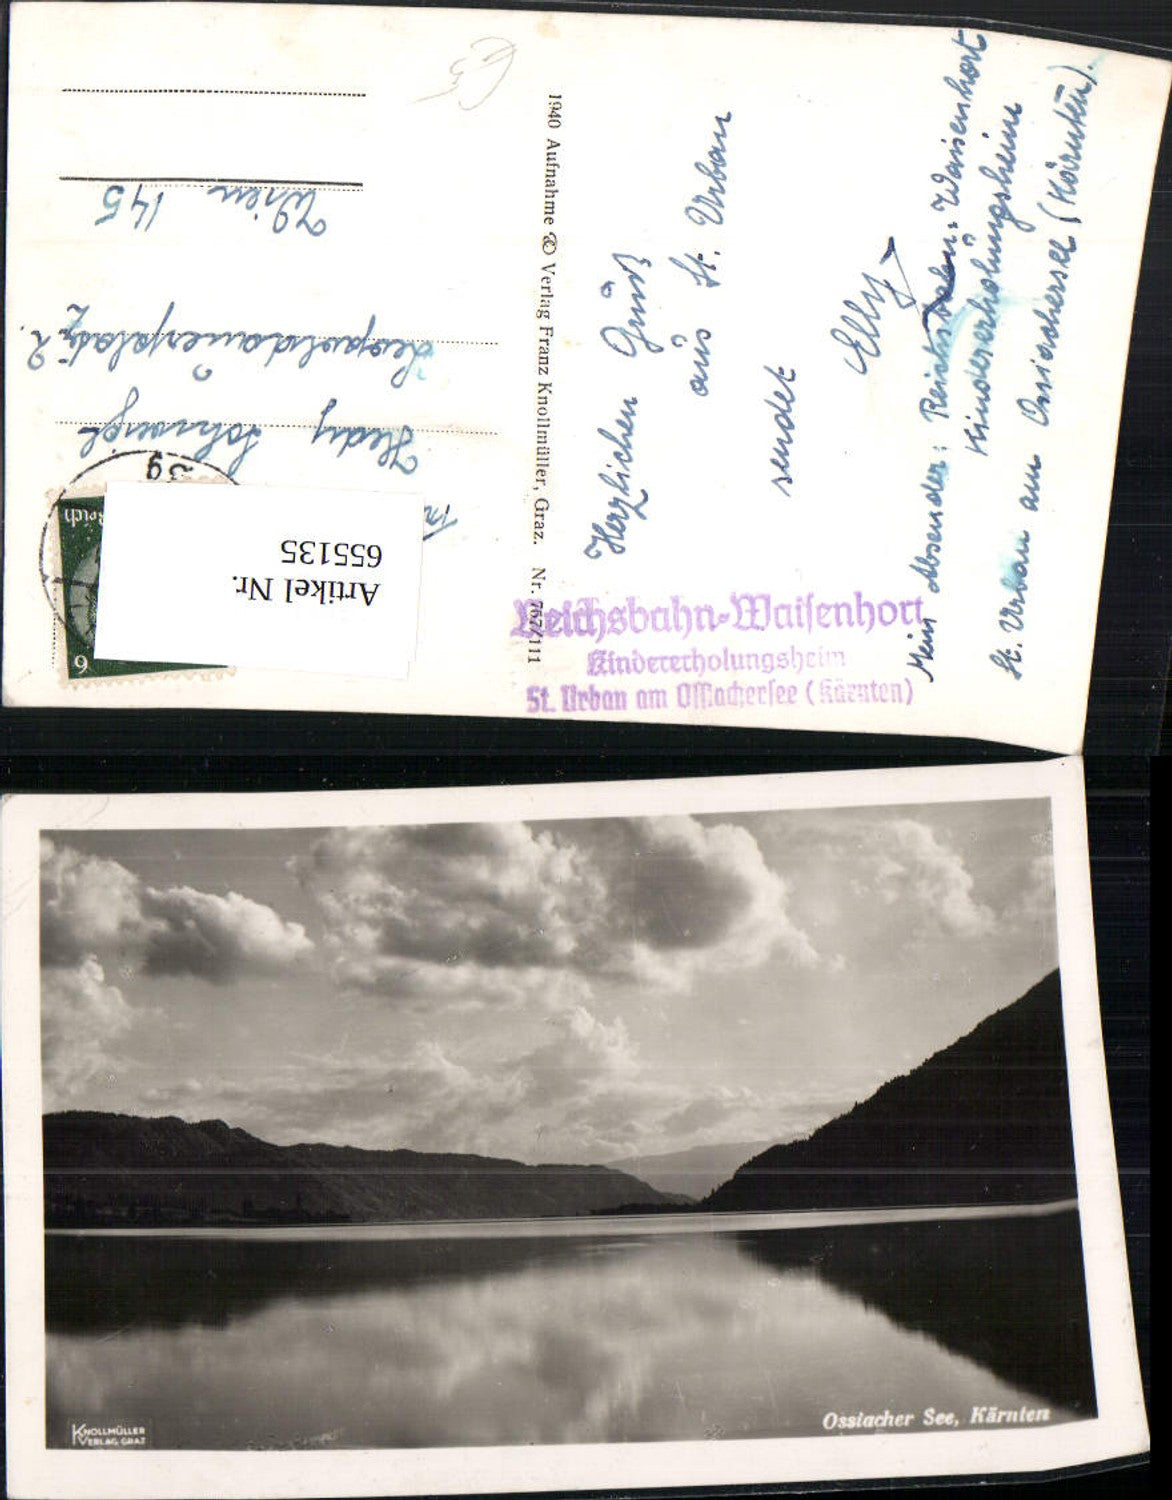 Herzlichen Gruß
aus St. Urban
sendet
Elly
Mein Absender: Waisenhort
Kindererholungsheim
St. Urban am Ossiachersee (Kärnten).
1940 Aufnahme © Verlag Franz Knollmüller, Graz. Nr. 757/111
Reichsbahn-Waisenhort
Kindererholungsheim
St. Urban am Ossiachersee (Kärnten)
Hedy
Leopoldauerplatz 2.
Wien 145
Reich
6
Artikel Nr.
655135
KNOLLMÜLLER
VERLAG GRAZ
Ossiacher See, Kärnten